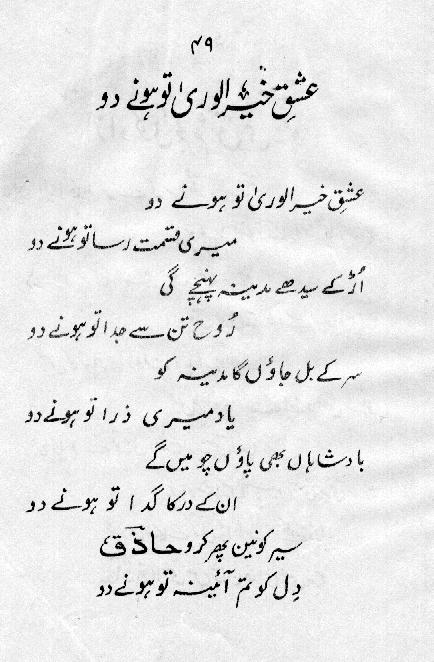 ۴۹
عشقِ خیر الوریٰ تو ہونے دو
عشقِ خیر الوریٰ تو ہونے دو
میری قسمت رسا تو ہونے دو
اُڑ کے سیدھے مدینہ پہنچے گی
رُوح تن سے جدا تو ہونے دو
سر کے بل جاؤں گا مدینہ کو
یاد میری ذرا تو ہونے دو
بادشاہاں بھی پاؤں چومیں گے
ان کے در کا گدا تو ہونے دو
سیر کونین پھر کرو حاذقؔ
دِل کو تم آئینہ تو ہونے دو